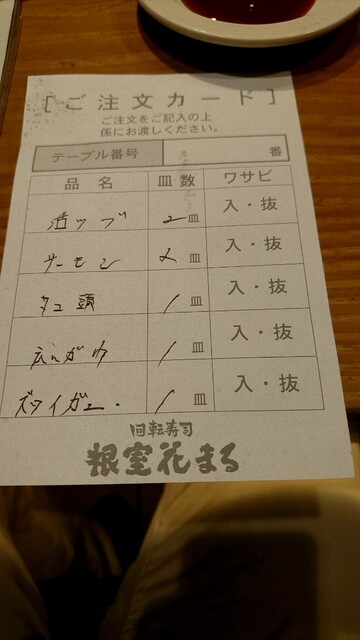 [ご注文カード]
ご注文をご記入の上
係にお渡しください。
テーブル番号 番
品名 皿数 ワサビ
活ツブ 2皿 入・抜
サーモン 2皿 入・抜
タコ頭 1皿 入・抜
1皿 入・抜
ズワイガニ. 1皿 入・抜
回転寿司
根室花まる